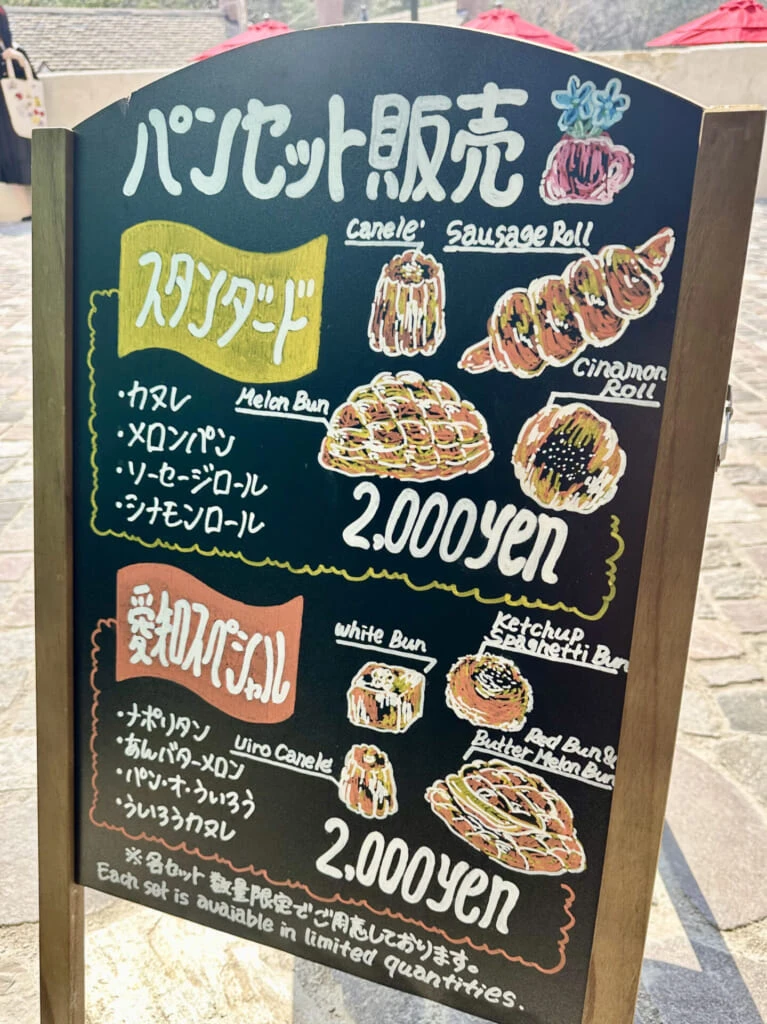 パンセット販売
スタンダード
Canele'
Sausage Roll
Cinamon
Roll
Melon Bun
・カヌレ
・メロンパン
・ソーセージロール
・シナモンロール
2,000yen
愛知スペシャル
White Bun
Ketchup
Spaghetti Bun
Uiro Canele'
Red Bun &
Butter Melon Bun
・ナポリタン
・あんバターメロン
・パン・オ・ういろう
・ういろうカヌレ
2,000yen
※各セット数量限定でご用意しております。
Each set is avaiable in limited quantities.